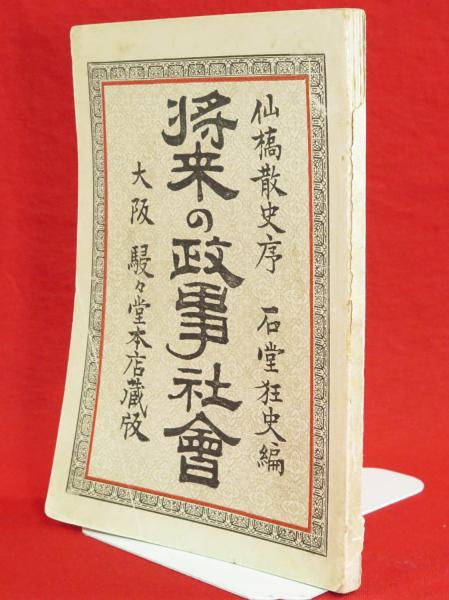 仙橋散史序 石堂狂史編
将来の政事社會
大阪 駸々堂本店蔵版